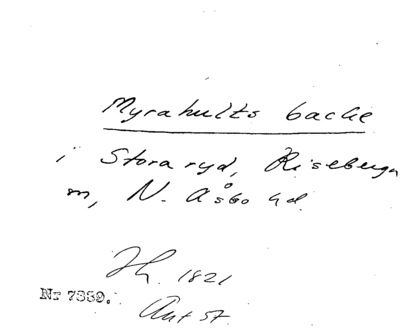 Myrahults backe
i Storaryd, Riseberga
n, N. Åsbo hd.
Jh. 1821
Nr 7359.
Ant 57